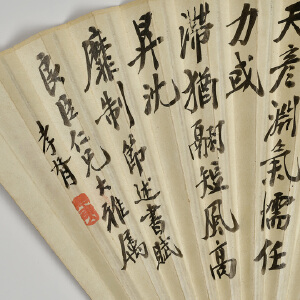 天彦淵氣懦任
力或
滯猶翮短風高
昇沈
靡制節述書賦
良臣仁兄大雅屬
孝胥